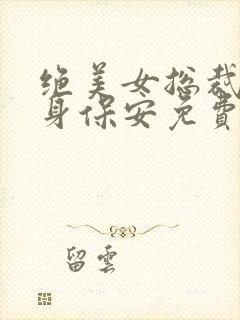 绝美女总裁
身保安免費
留雲